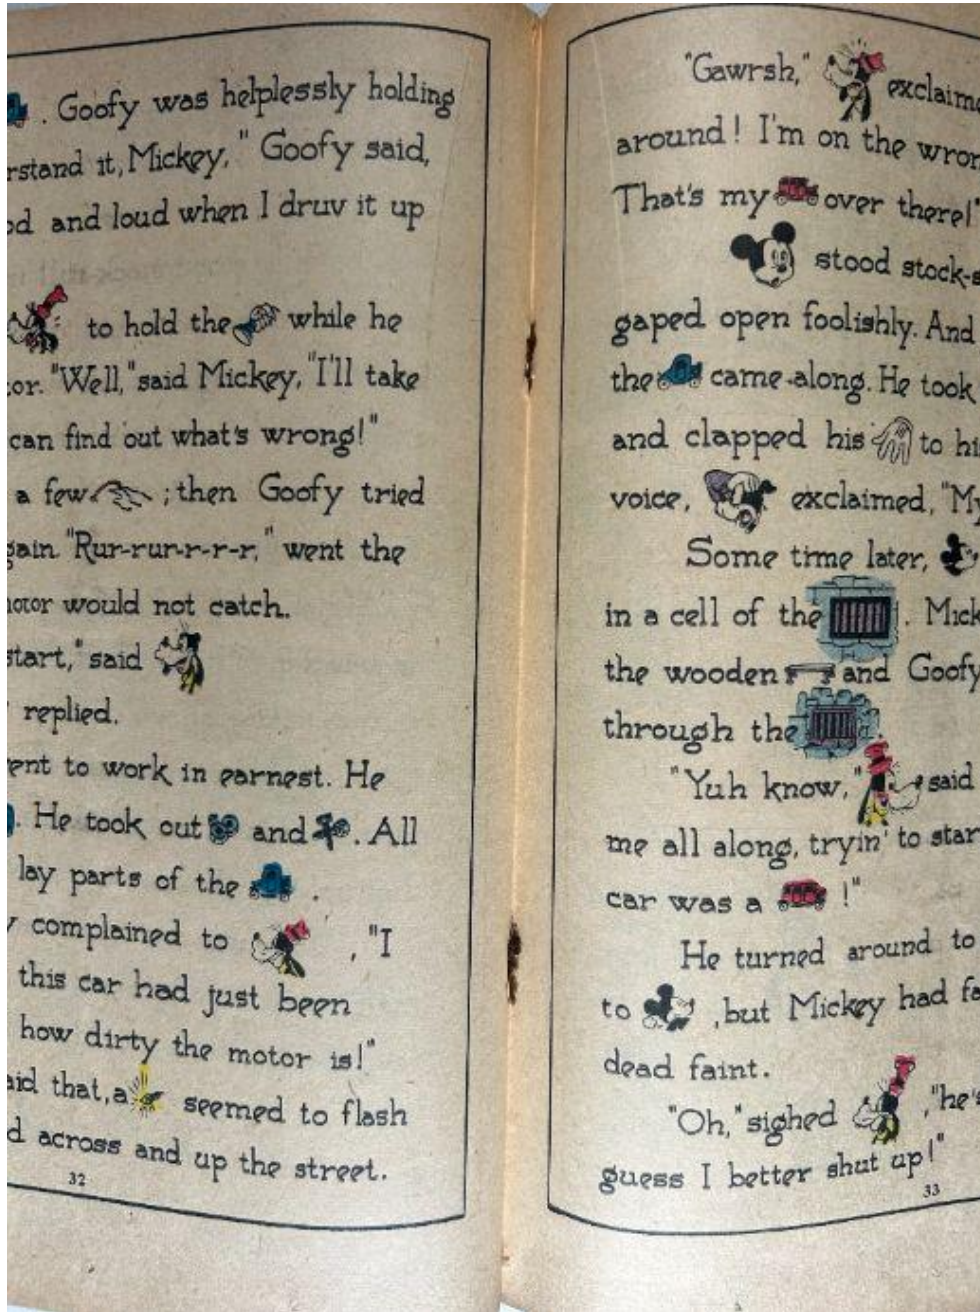 . Goofy was helplessly holding
rstand it, Mickey," Goofy said,
od and loud when I druv it up
to hold the while he
or. "Well," said Mickey, "I'll take
can find out what's wrong!"
a few ; then Goofy tried
gain "Rur-rur-r-r-r," went the
otor would not catch.
start," said
" replied.
ent to work in earnest. He
. He took out and . All
lay parts of the .
y complained to , "I
this car had just been
how dirty the motor is!"
aid that, a seemed to flash
d across and up the street.
32
"Gawrsh," exclaime
around! I'm on the wron
That's my over there!"
stood stock-s
gaped open foolishly. And
the came along. He took
and clapped his to hi
voice, exclaimed, "My
Some time later,
in a cell of the . Mick
the wooden and Goofy
through the .
"Yuh know," said
me all along, tryin' to star
car was a !"
He turned around to
to , but Mickey had fa
dead faint.
"Oh," sighed , "he's
guess I better shut up!"
33